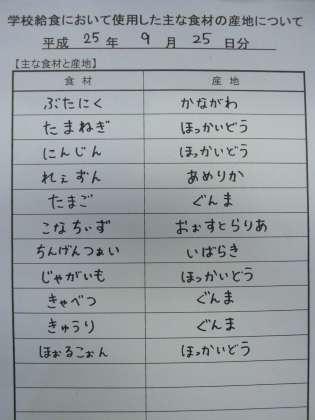 学校給食において使用した主な食材の産地について
平成 25 年 9 月 25 日分
【主な食材と産地】
食材 産地
ぶたにく かながわ
たまねぎ ほっかいどう
にんじん ほっかいどう
れぇずん あめりか
たまご ぐんま
こなちぃず おぉすとらりあ
ちんげんつぁい いばらき
じゃがいも ほっかいどう
きゃべつ ぐんま
きゅうり ぐんま
ほぉるこぉん ほっかいどう